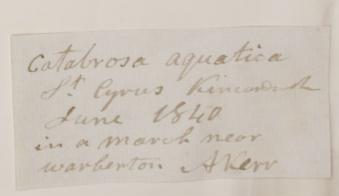 Catabrosa aquatica
St Cyrus Kincardnsh
June 1840
in a march near
warberton AKerr